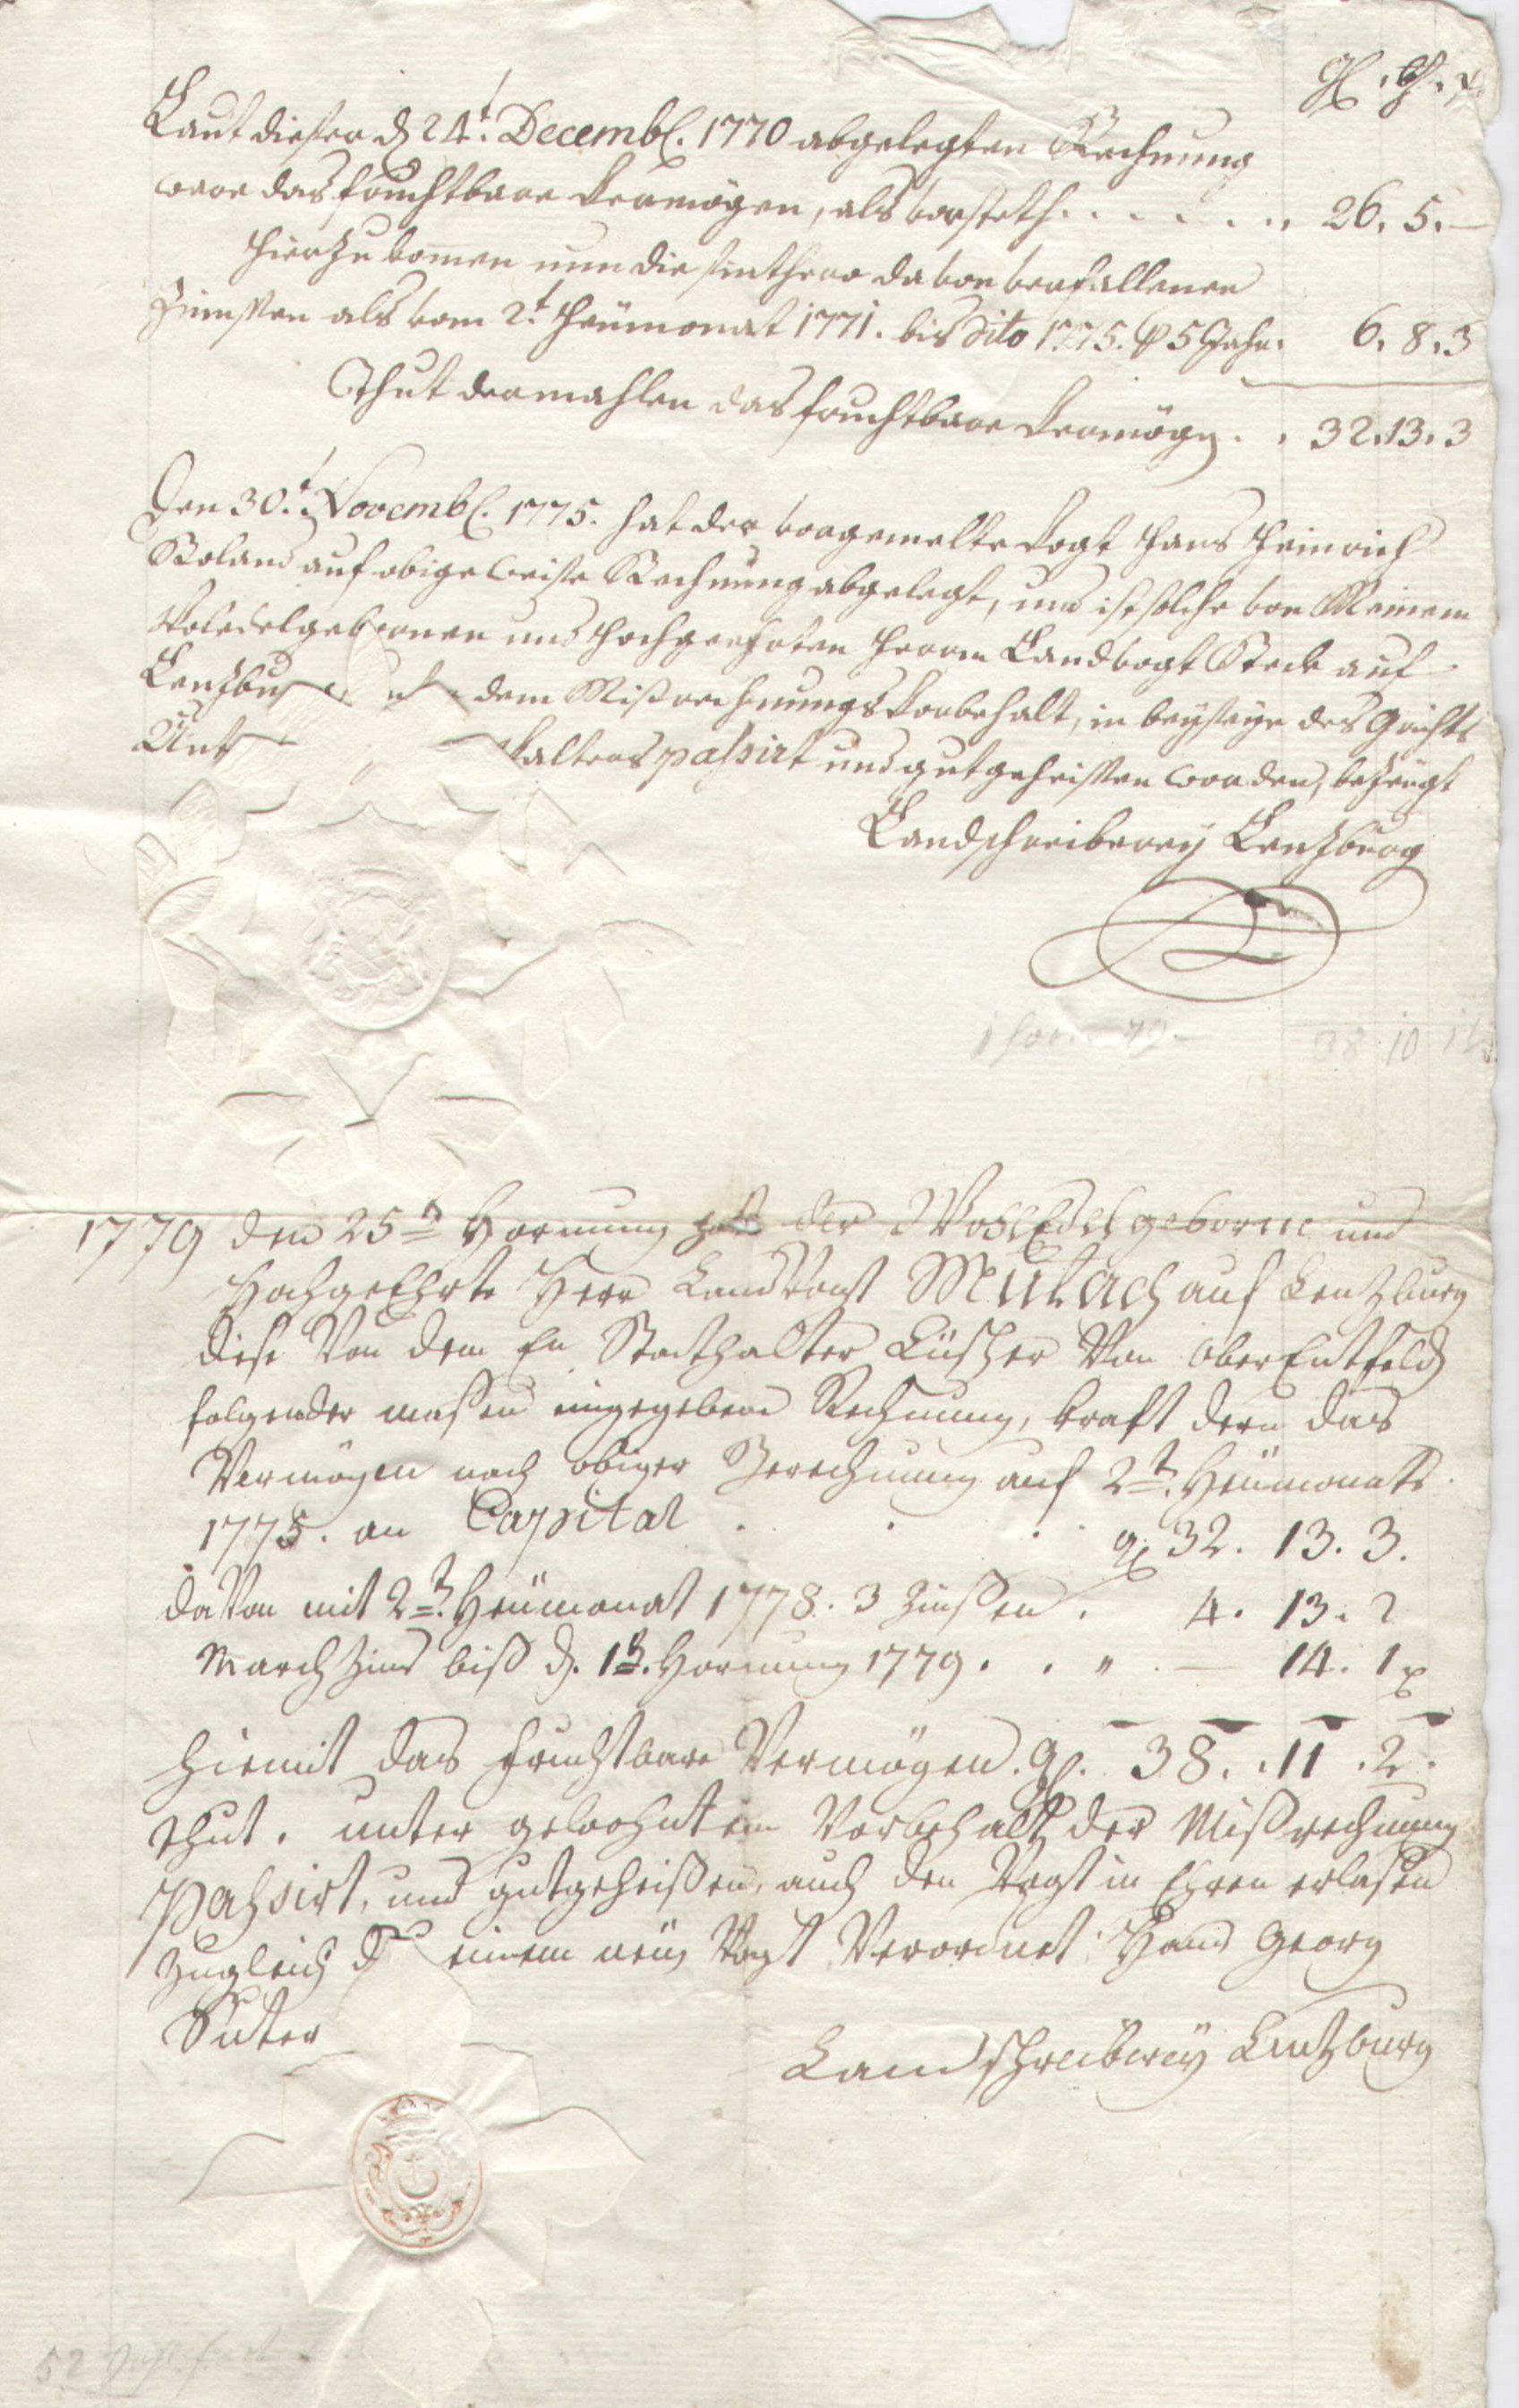 gl. ß. x.
Laut dieser d. 24t. Decembl. 1770 abgelegten Rechnung
ware das fruchtbare Vermögen, als vorsteth . . . . . . 26. 5. —
Hierzu komen nun die sinthero davon verfallenen
Zinnssen als vom 2t. Heümonat 1771. bis dito 1775. p 5 Jahr. 6. 8. 3
Thut dermahlen das fruchtbare Vermögen . . 32. 13. 3
Den 30t. Novembl. 1775. hat der vorgemelte Vogt Hans Heinrich
auf obige weise Rechnung abgelegt, und ist solche von Meinem
Woledelgebornen und Hochgeehrten Herren Landvogt Steck auf
Lenzbu dem Missrechnungs Vorbehalt, in beyseyn des Grichts
Unt halters passirt und gutgeheissen worden, bezeügt
Landschreiberey Lenzburg
28 10
1779 den 25n Hornung hat der WohlEdelgeborne und
HochgeEhrte Herr LandVogt Mutach auf Lentzburg
diese Von dem Statthalter Lüscher Von OberEntfeld
folgender massen eingegebene Rechnung, kraft deren das
Vermögen nach obiger Berechnung auf 2t. Heümonats
1775. an Capital . . . . gl 32. 13. 3.
daVon mit 2t. Heümonat 1778. 3 Zinssen . 4. 13. 2
Marchzins biss d. Hornung 1779 . . " . — 14. 1 x
hiemit das fruchtbare Vermögen. gl. 38. 11. 2.
thut. unter gewohntem Vorbehalt der Missrechnung
Passirt, und gutgeheissen, auch den Vogt in Ehren erlasen
zugleich einem neüen Vogt Verordnet: Hans Georg
Suter
Landschreiberey Lentzburg
52